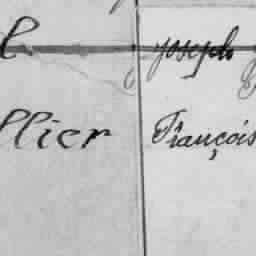 l Joseph
llier François